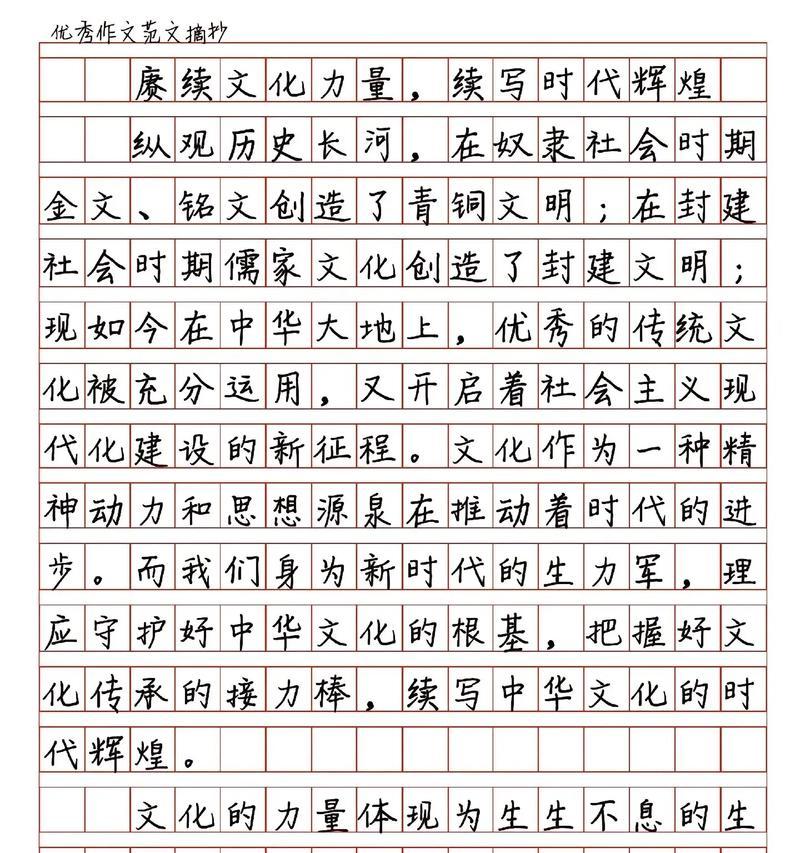 优秀作文范文摘抄
赓续文化力量，续写时代辉煌
纵观历史长河，在奴隶社会时期
金文、铭文创造了青铜文明；在封建
社会时期儒家文化创造了封建文明；
现如今在中华大地上，优秀的传统文
化被充分运用，又开启着社会主义现
代化建设的新征程。文化作为一种精
神动力和思想源泉在推动着时代的进
步。而我们身为新时代的生力军，理
应守护好中华文化的根基，把握好文
化传承的接力棒，续写中华文化的时
代辉煌。
文化的力量体现为生生不息的生